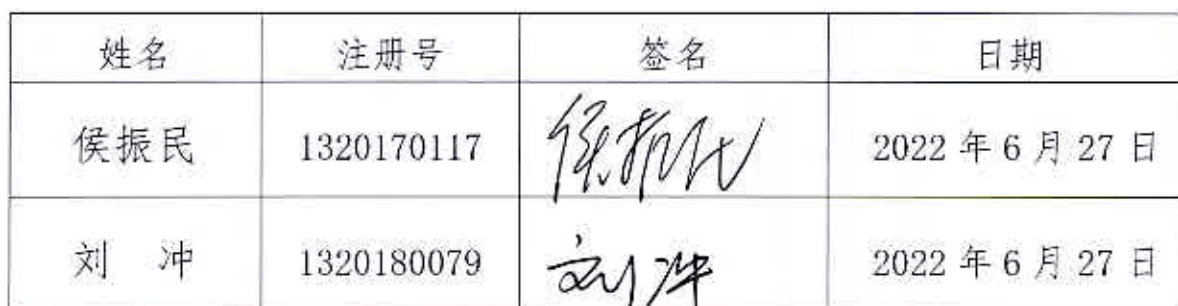 姓名 注册号 签名 日期
侯振民 1320170117 侯振民 2022 年 6 月 27 日
刘 冲 1320180079 刘冲 2022 年 6 月 27 日